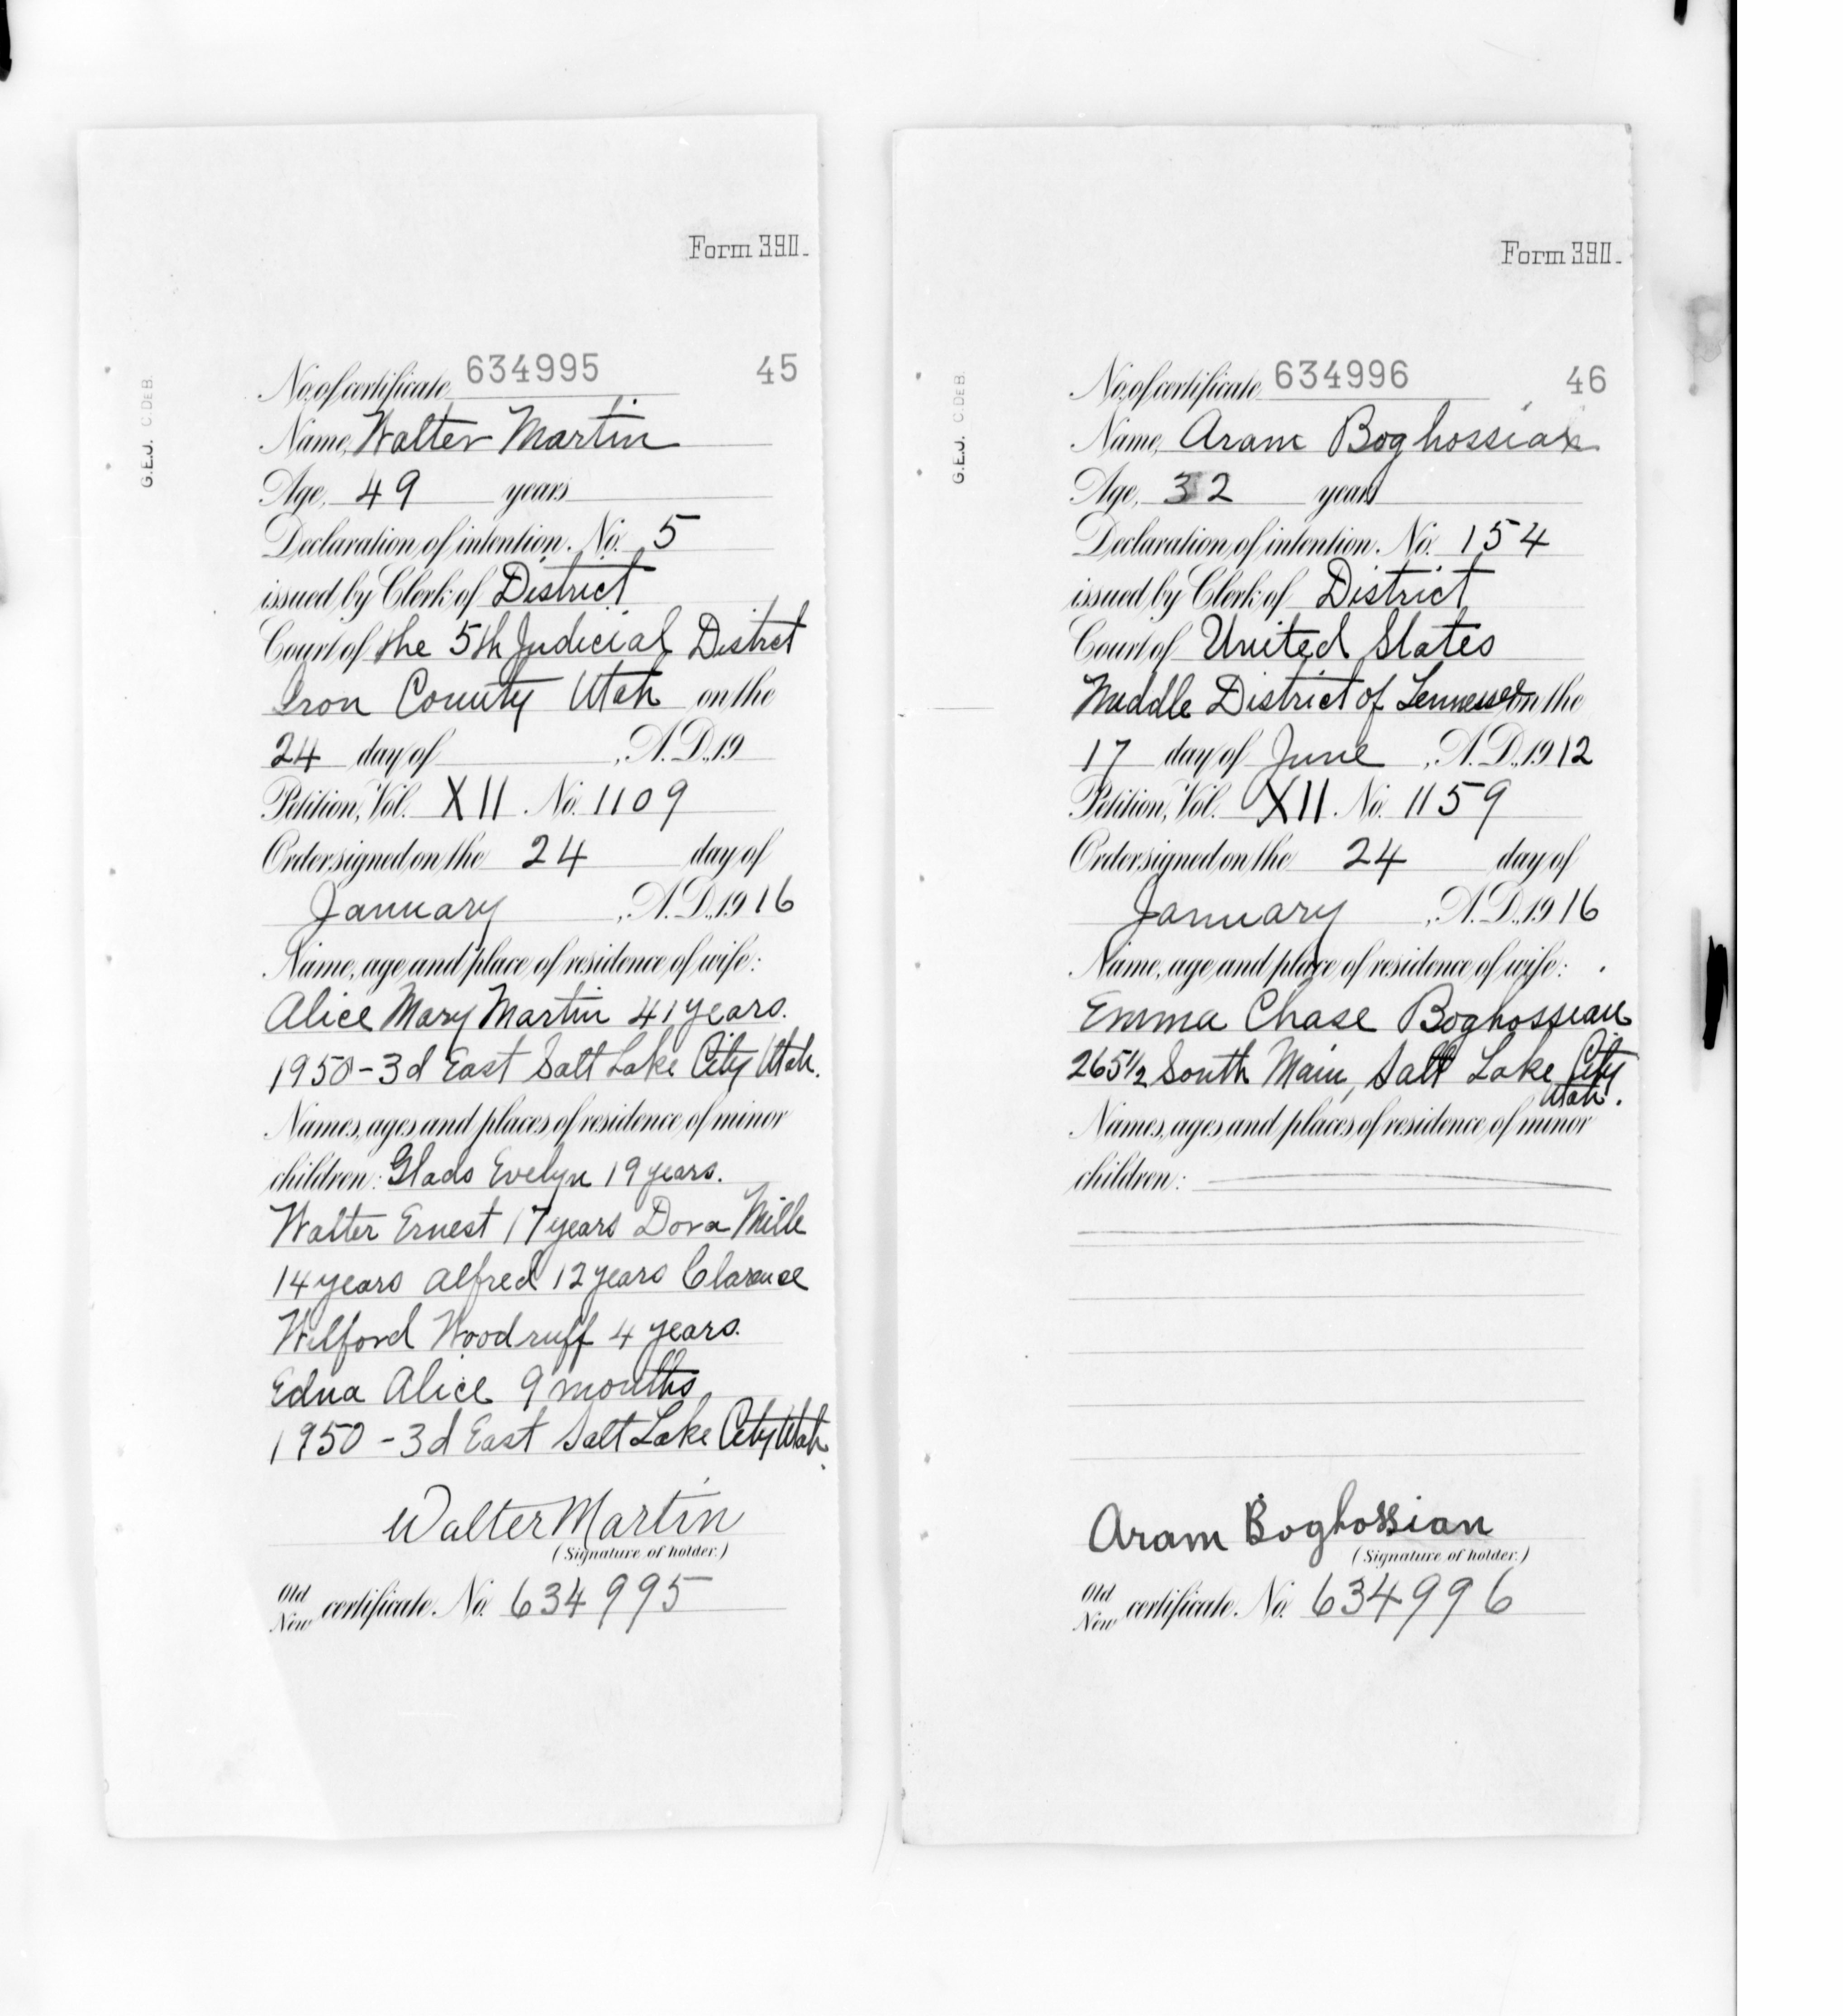 Form 390.
No. of certificate, 634995 45
Name, Walter Martin
Age, 49 years
Declaration of intention, No. 5
issued by Clerk of District
Court of the 5th Judicial Distrct
Iron County Utah on the
24 day of , A.D., 19
Petition, Vol. XII No. 1109
Order signed on the 24 day of
January , A.D., 1916
Name, age and place of residence of wife:
Alice Mary Martin 41 years.
1950-3d East Salt Lake City Utah.
Names, ages and places of residence of minor
children: Glads Evelyn 19 years.
Walter Ernest 17 years Dora Mille
14 years Alfred 12 years Clarence
Wilford Woodruff 4 years.
Edna Alice 9 months
1950-3d East Salt Lake City Utah.
Walter Martin
(Signature of holder.)
Old
New certificate. No. 634995
G.E.J. C. DE B.
Form 390.
No. of certificate, 634996 46
Name, Aram Boghossian
Age, 32 years
Declaration of intention, No. 154
issued by Clerk of District
Court of United States
Middle District of Tennessee on the
17 day of June , A.D., 1912
Petition, Vol. XII No. 1159
Order signed on the 24 day of
January , A.D., 1916
Name, age and place of residence of wife:
Emma Chase Boghossian
265 1/2 South Main, Salt Lake City
Utah.
Names, ages and places of residence of minor
children:
Aram Boghossian
(Signature of holder.)
Old
New certificate. No. 634996
G.E.J. C. DE B.